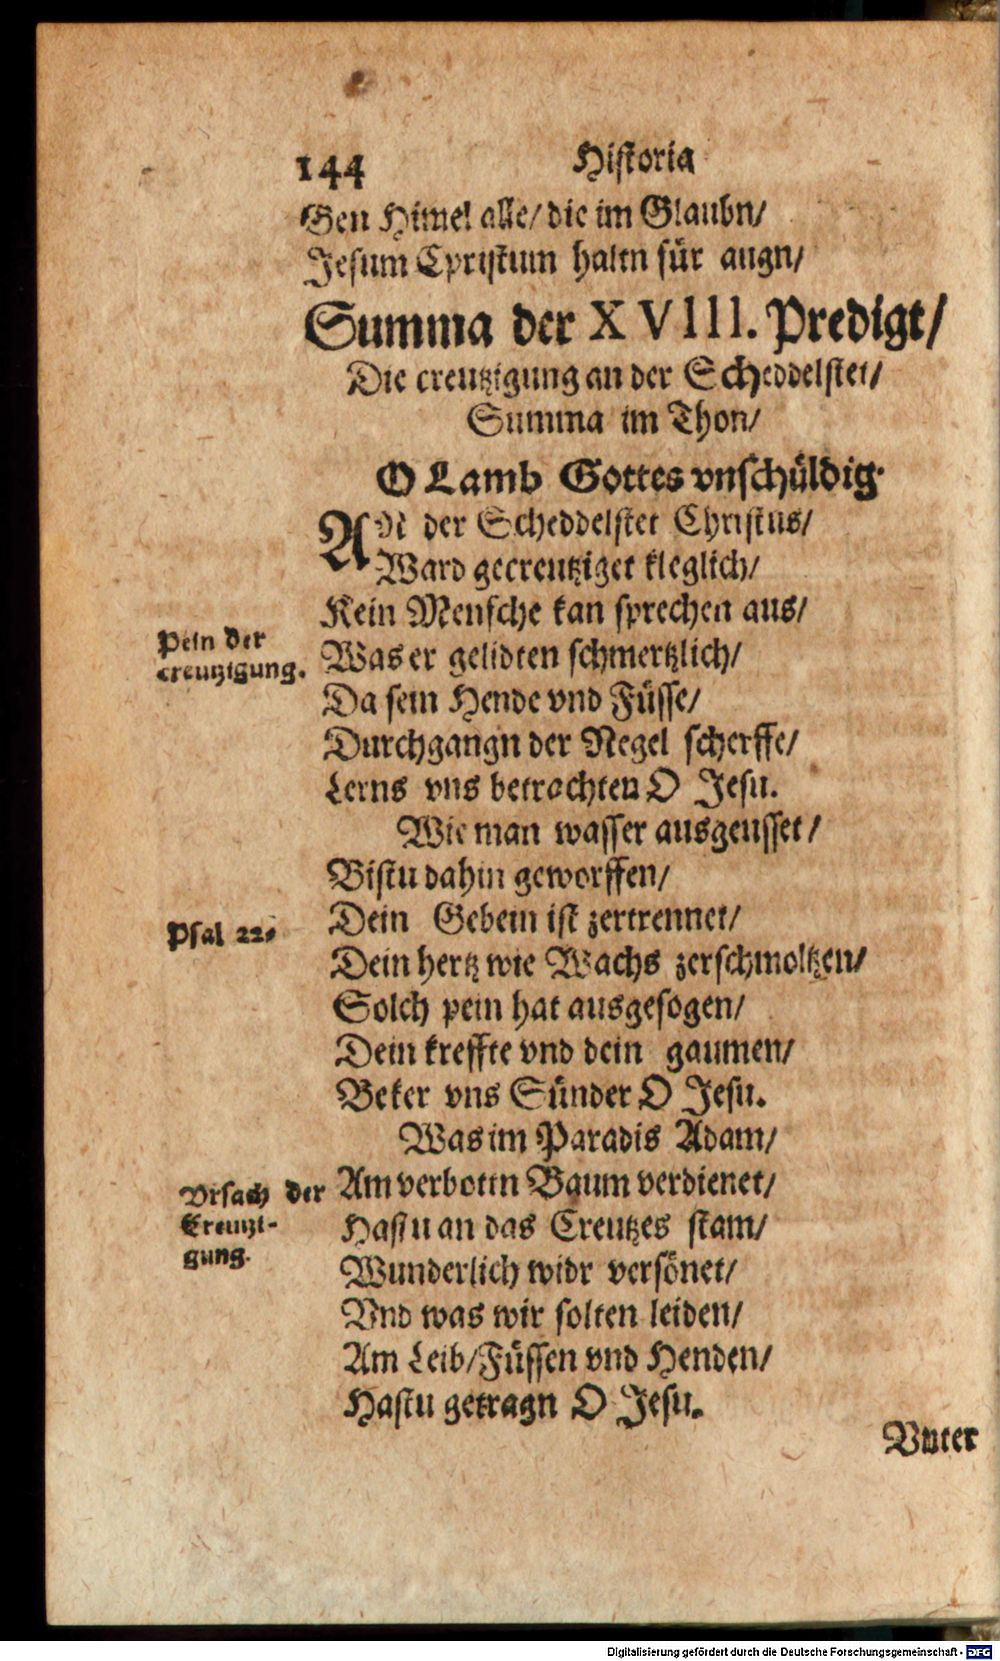 144 Historia
Gen Himel alle/ die im Glaubn/
Jesum Cpristum haltn für augn/
Summa der XVIII. Predigt/
Die creutzigung an der Scheddelstet/
Summa im Thon/
O Lamb Gottes vnschüldig.
AN der Scheddelstet Christus/
Ward gecreutziget kleglich/
Kein Mensche kan sprechen aus/
Pein der
creutzigung.
Was er gelidten schmertzlich/
Da sein Hende vnd Füsse/
Durchgangn der Negel scherffe/
Lerns vns betrachten O Jesu.
Wie man wasser ausgeusset/
Bistu dahin geworffen/
Psal 22.
Dein Gebein ist zertrennet/
Dein hertz wie Wachs zerschmoltzen/
Solch pein hat ausgesogen/
Dein kreffte vnd dein gaumen/
Beker vns Sünder O Jesu.
Was im Paradis Adam/
Vrsach der
Creutzi-
gung.
Am verbottn Baum verdienet/
Hastu an das Creutzes stam/
Wunderlich widr versönet/
Vnd was wir solten leiden/
Am Leib/Füssen vnd Henden/
Hastu getragn O Jesu.
Vnter
Digitalisierung gefördert durch die Deutsche Forschungsgemeinschaft - DFG